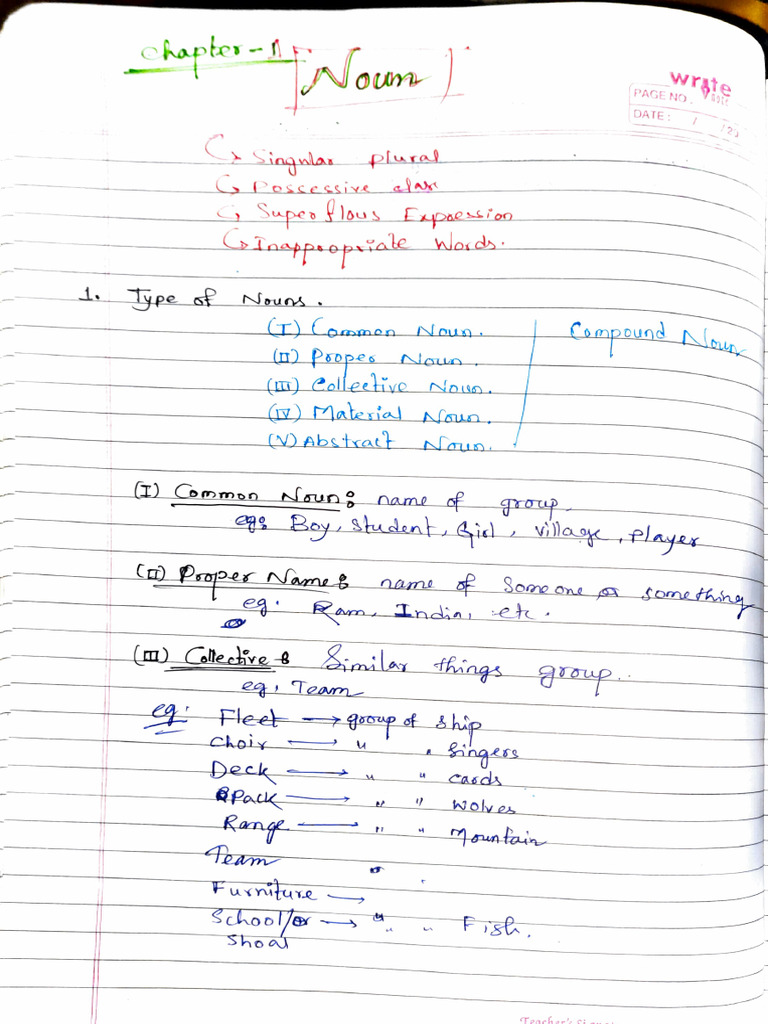 Chapter-1
Noun
write
PAGE NO.
DATE: / /20
Singular plural
Possessive
Superflous Expression
Inappropriate Words.
1. Type of Nouns.
(I) Common Noun.
Compound Noun
(II) Proper Noun.
(III) Collective Noun.
(IV) Material Noun.
(V) Abstract Noun.
(I) Common Noun: name of group.
eg: Boy, student, Girl, village, player
(II) Proper Name: name of Someone or something
eg. Ram, India, etc.
(III) Collective: Similar things group..
eg, Team
eg: Fleet → group of ship
Choir → " " Singers
Deck → " " cards
Pack → " " wolves
Range → " " Mountain
Team
Furniture →
School/or → " " Fish.
Shoal